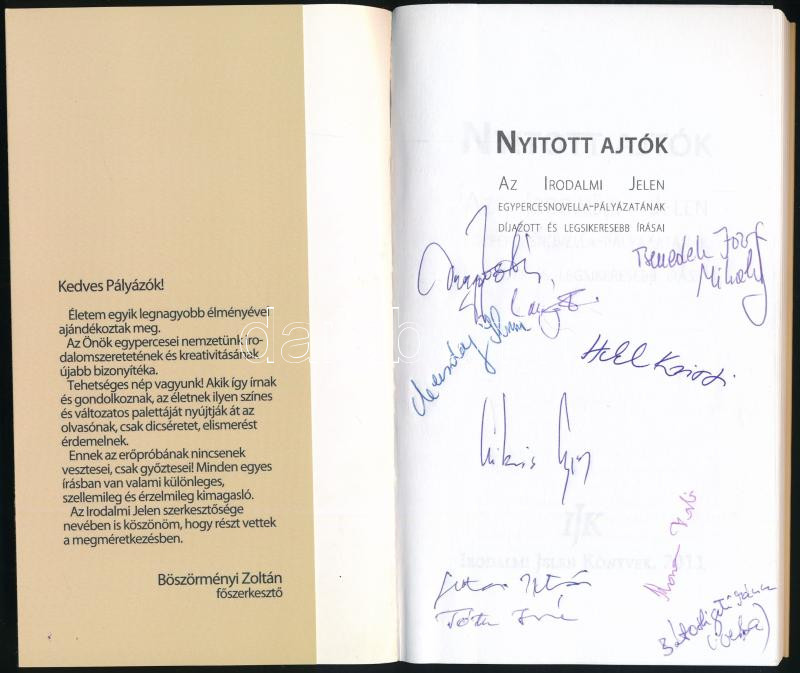 Kedves Pályázók!
Életem egyik legnagyobb élményével
ajándékoztak meg.
Az Önök egypercesei nemzetünk iro-
dalomszeretetének és kreativitásának
újabb bizonyítéka.
Tehetséges nép vagyunk! Akik így írnak
és gondolkoznak, az életnek ilyen színes
és változatos palettáját nyújtják át az
olvasónak, csak dicséretet, elismerést
érdemelnek.
Ennek az erőpróbának nincsenek
vesztesei, csak győztesei! Minden egyes
írásban van valami különleges,
szellemileg és érzelmileg kimagasló.
Az Irodalmi Jelen szerkesztősége
nevében is köszönöm, hogy részt vettek
a megméretkezésben.
Böszörményi Zoltán
főszerkesztő
NYITOTT AJTÓK
AZ IRODALMI JELEN
EGYPERCESNOVELLA-PÁLYÁZATÁNAK
DÍJAZOTT ÉS LEGSIKERESEBB ÍRÁSAI
Benedek József
Mihály
István
Tóth
IJK
IRODALMI JELEN KÖNYVEK, 2011